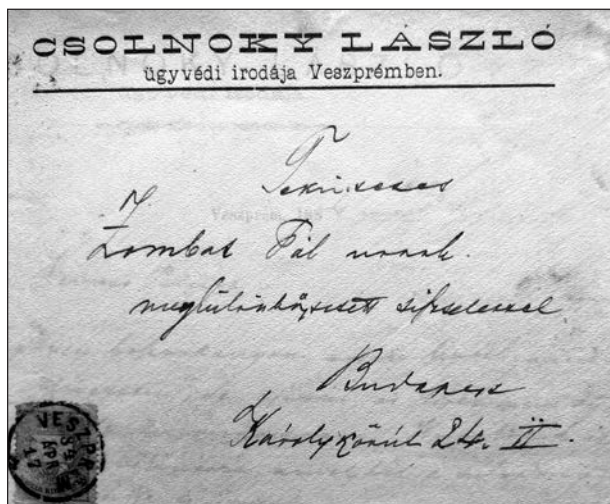 CSOLNOKY LÁSZLÓ
ügyvédi irodája Veszprémben.
Tekintetes
Zombat Pál urnak.
megkülönböztetett tisztelettel
Budapest
Károly körút 24. II.
VESZPRÉM
APR
17